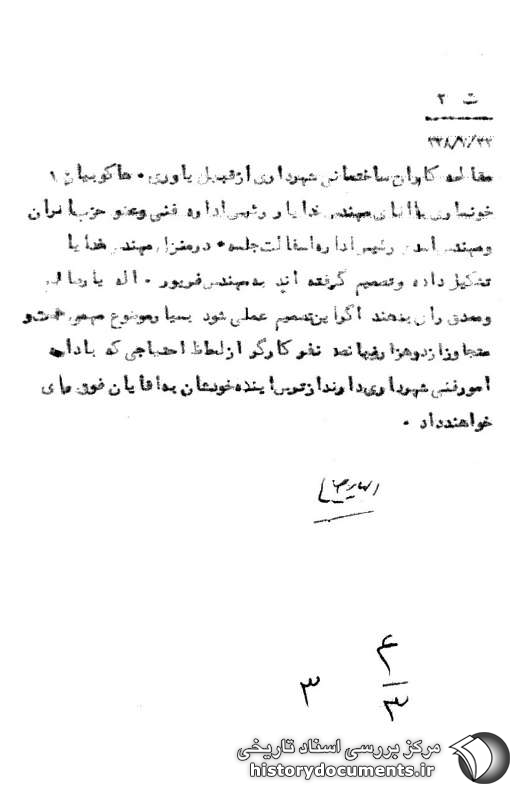 ت ۲
مقاطعه کاران ساختمانی شهرداری از قبیل یاوری. هاکوپیان ۱
خونساری با اقای مهندس خدایار رئیس اداره فنی و عضو حزب ایران
و مهندس اسدی رئیس اداره اسفالت جلسه. در منزل مهندس خدایا
تشکیل داده و تصمیم گرفته اند به مهندس فریور. اله یار صالح
و مصدق رای بدهند اگر این تصمیم عملی شود بسیار موضوع مهمی است و
متجاوز از دو هزار نفر کارگر از لحاظ احتیاجی که با داره
امور فنی شهرداری دارند از ترس اینده خودشان به اقایان فوق رای
خواهند داد.
۴
۳
۳
مرکز بررسی اسناد تاریخی
historydocuments.ir